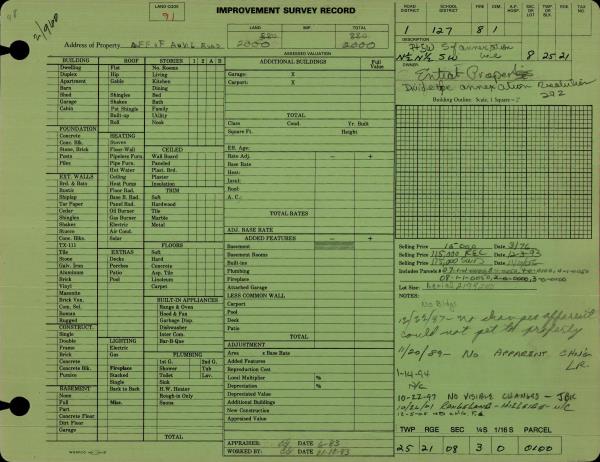 IMPROVEMENT SURVEY RECORD
LAND CODE
91
ROAD DISTRICT SCHOOL DISTRICT FIRE CEM. A.F. HOSP. TWP OR BLK. TAX NO.
1 127 8 1
LAND TOTAL
880 880
2000 2000
Address of Property
DESCRIPTION
N½ N½ SW 8 25 21
OWNER
Entiat
annexation Resolution
292
Building Outline: Scale, 1 Square =
ASSESSED VALUATION
BUILDING ROOF STORIES 1 2 A B
Dwelling Flat No. Rooms
Duplex Hip Living
Apartment Gable Kitchen
Barn Dining
Shed Shingles Bed
Garage Shakes Bath
Cabin Pat Shingle Family
Built-up Utility
Roll Nook
FOUNDATION
Concrete HEATING
Conc. Blk. Stoves CEILED
Stone, Brick Floor-Wall Wall Board
Posts Pipeless Furn. Paneled
Piles Pipe Furn. Plast. Brd.
Hot Water Plaster
EXT. WALLS Ceiling Insulation
Brd. & Bats Heat Pumps TRIM
Rustic Floor Rad.
Shiplap Base B. Rad. Soft
Tar Paper Panel Rad. Hardwood
Cedar Oil Burner Tile
Shingles Gas Burner Marble
Shakes Electric Metal
Stucco Air Cond.
Conc. Blks. Solar
TX-111 FLOORS
Tile EXTRAS Soft
Stone Decks Hard
Galv. Iron Porches Concrete
Aluminum Patio Asp. Tile
Brick Pool Linoleum
Vinyl Carpet
Masonite
Brick Ven. BUILT-IN APPLIANCES
Com. Sel. Range & Oven
Roman Hood & Fan
Rugged Garbage Disp.
CONSTRUCT. Dishwasher
Single Inter Com.
Double LIGHTING Bar-B-Que
Frame Electric
Brick Gas PLUMBING
Concrete 1st G. 2nd G.
Concrete Blk. Fireplace Shower Tub
Pumice Stacked Toilet Lav.
Single Sink
BASEMENT Back to B. H.W. Heater
None Rough-in Only
Full Misc. Sauna
Part
Concrete Floor
Dirt Floor
Garage TOTAL
ADDITIONAL BUILDINGS Full Value
Garage: X
Carport: X
TOTAL
Class Cond. Yr. Built
Square Ft. Height
Eff. Age:
Rate Adj. - +
Base Rate
Heat:
Insul:
Roof:
A. C.:
TOTAL RATES
ADJ. BASE RATE
ADDED FEATURES - +
Basement
Basement Rooms
Built-ins
Plumbing
Fireplace
Attached Garage
LESS COMMON WALL
Carport
Pool
Deck
Patio
TOTAL
ADJUSTMENT
Area x Base Rate
Added Features
Reproduction Cost
Local Multiplier %
Depreciation %
Depreciated Value
Additional Buildings
New Construction
Appraised Value
APPRAISER: DATE 6-83
WORKED BY: DATE 11-18-83
Selling Price Date 3/76
Selling Price 115,000 REC Date 12-3-93
Selling Price Date
Includes Parcels
Lot Size:
NOTES:
No Bldgs
12/23/87 - no changes apparent
could not get to property
11/20/89 - NO APPARENT
LR.
1-14-94
N/C
10-22-97 NO VISIBLE CHANGES - JBR
TWP RGE SEC ¼S 1/16 PARCEL
25 21 08 3 0 0100